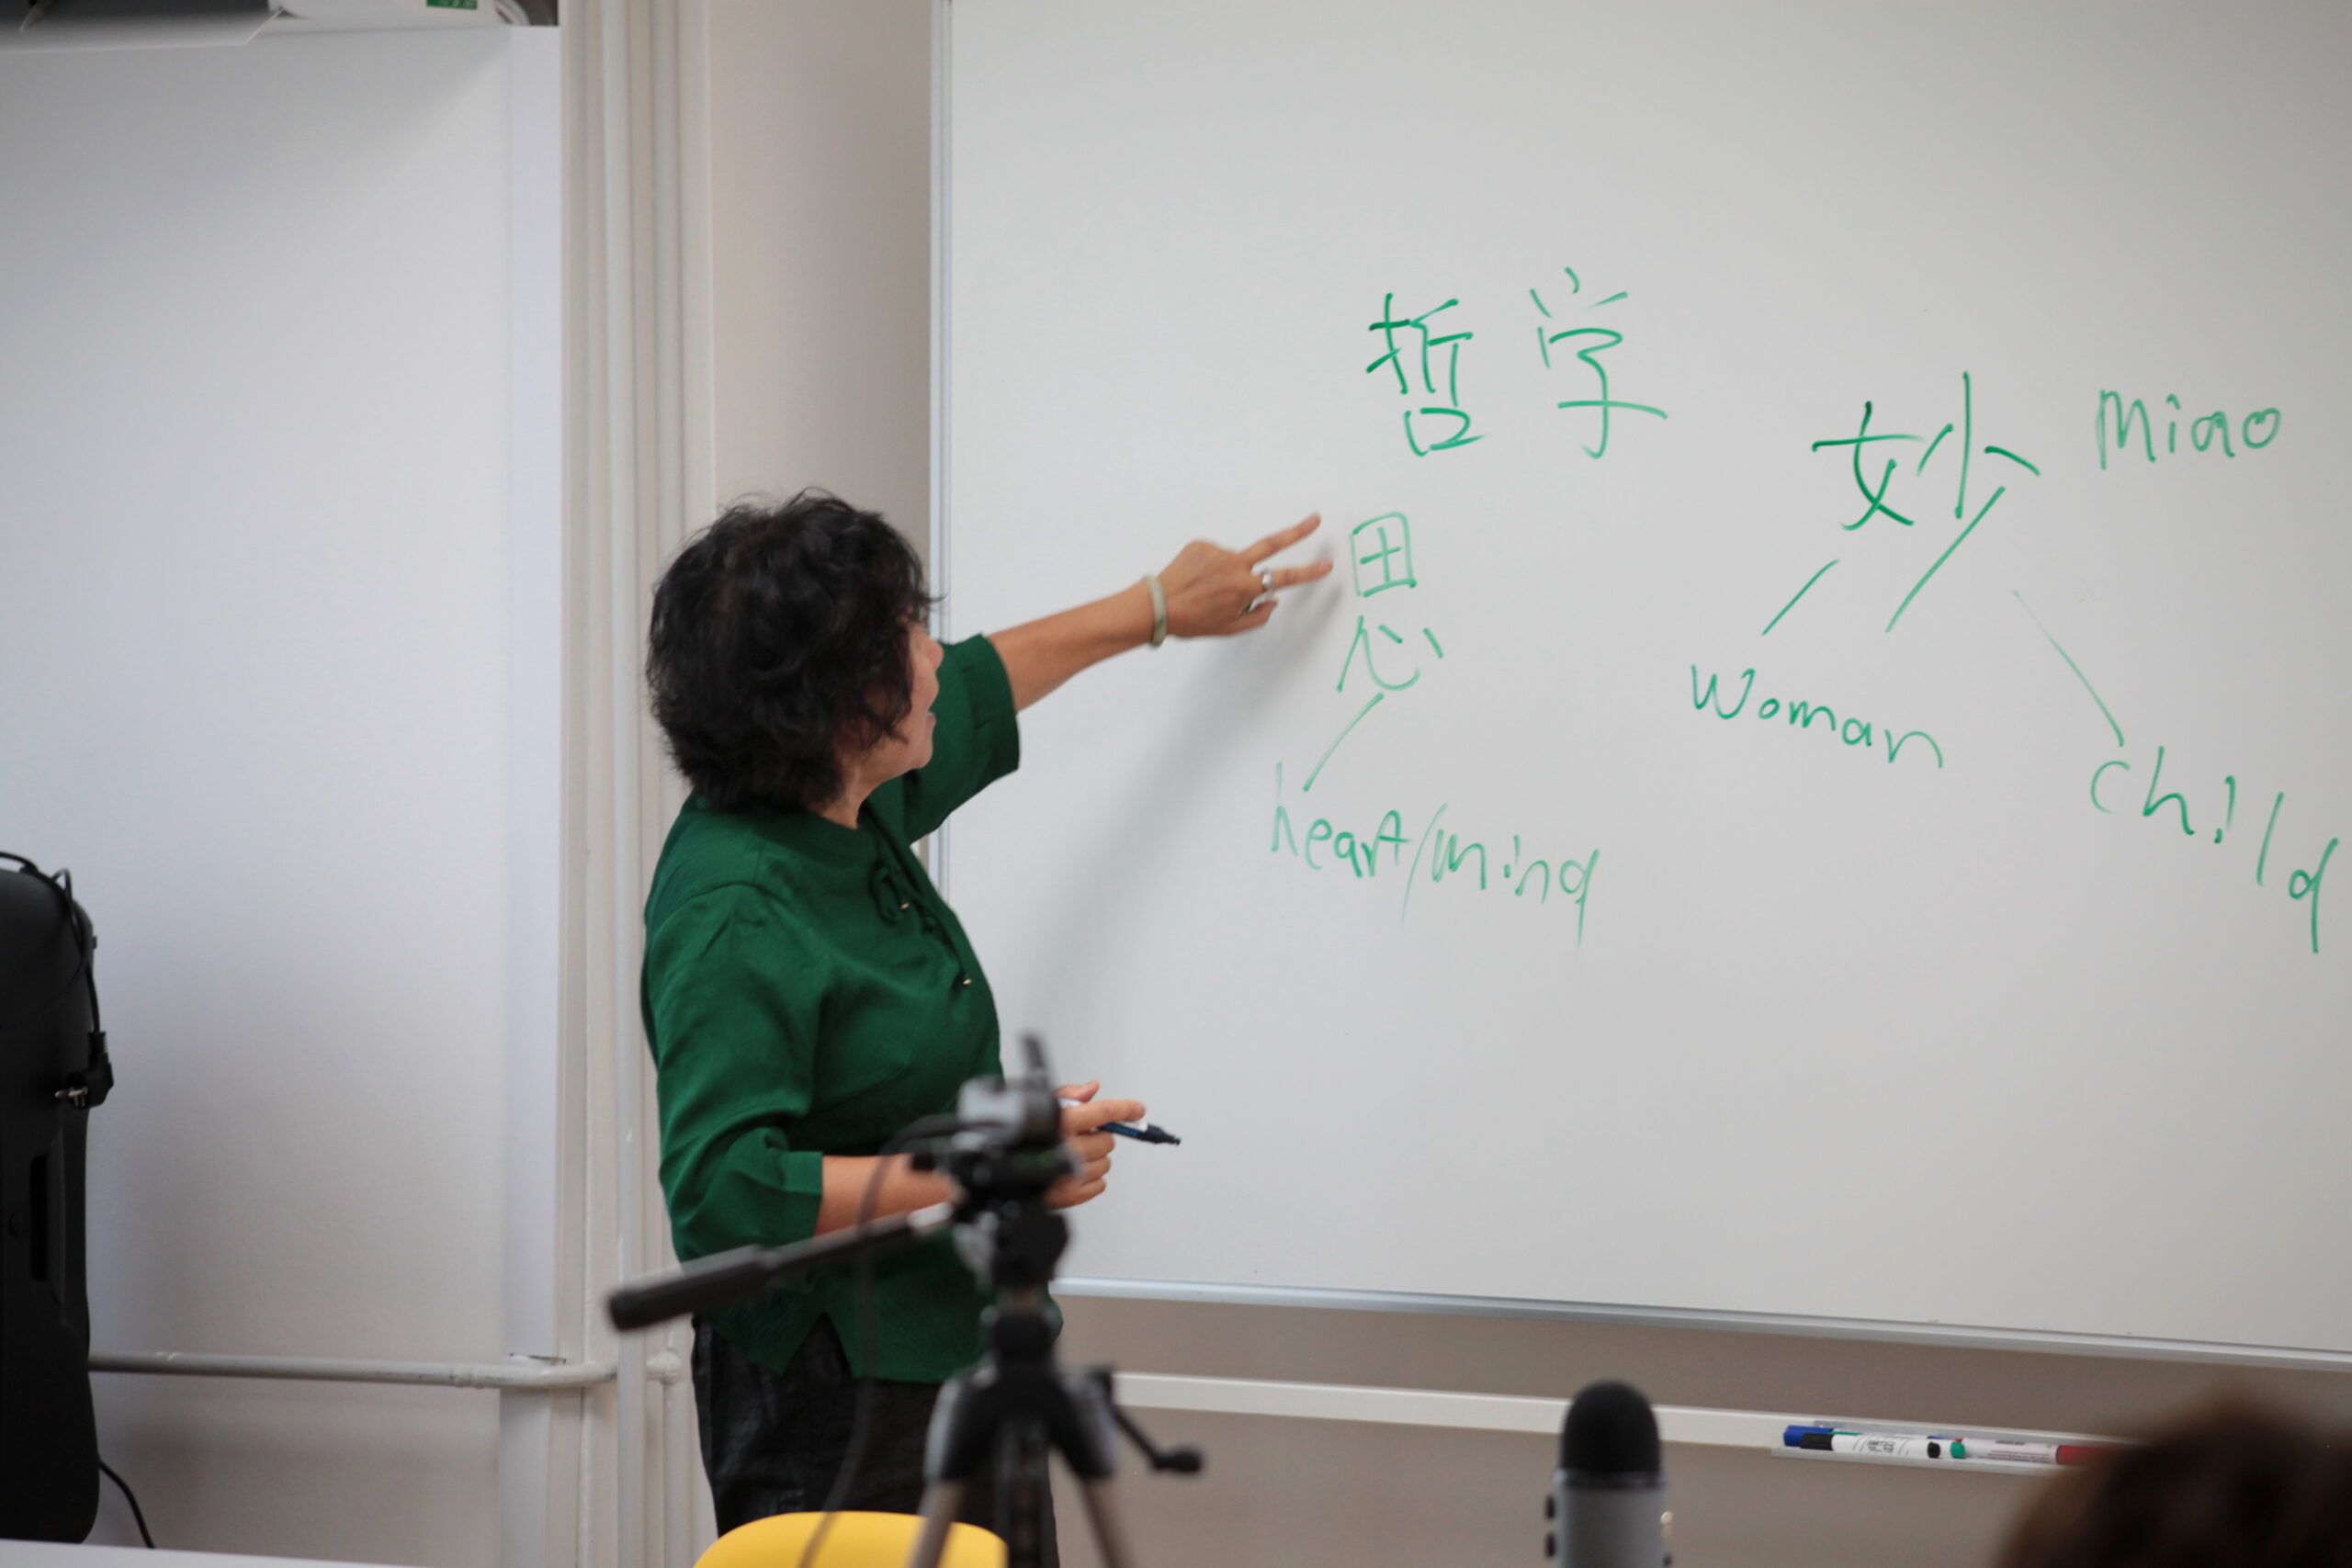 哲学
妙 miao
思
woman
child
heart/mind